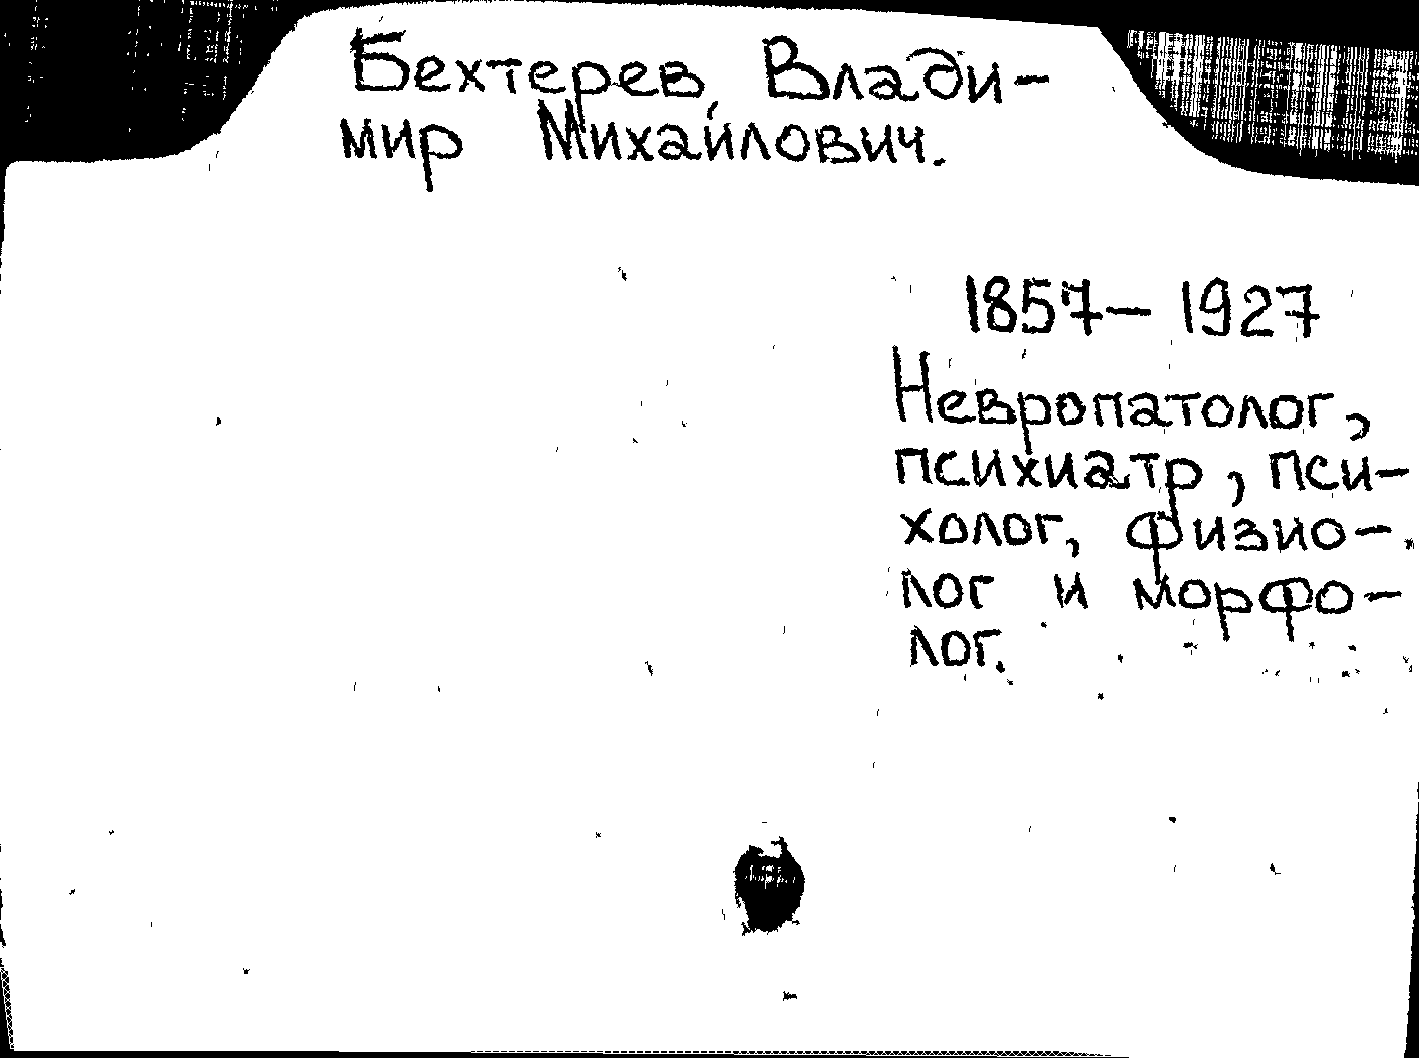 Бехтерев, Влади-
мир Михайлович.
1857-1927
Невропатолог,
психиатр, пси-
холог, физио-
лог и морфо-
лог.